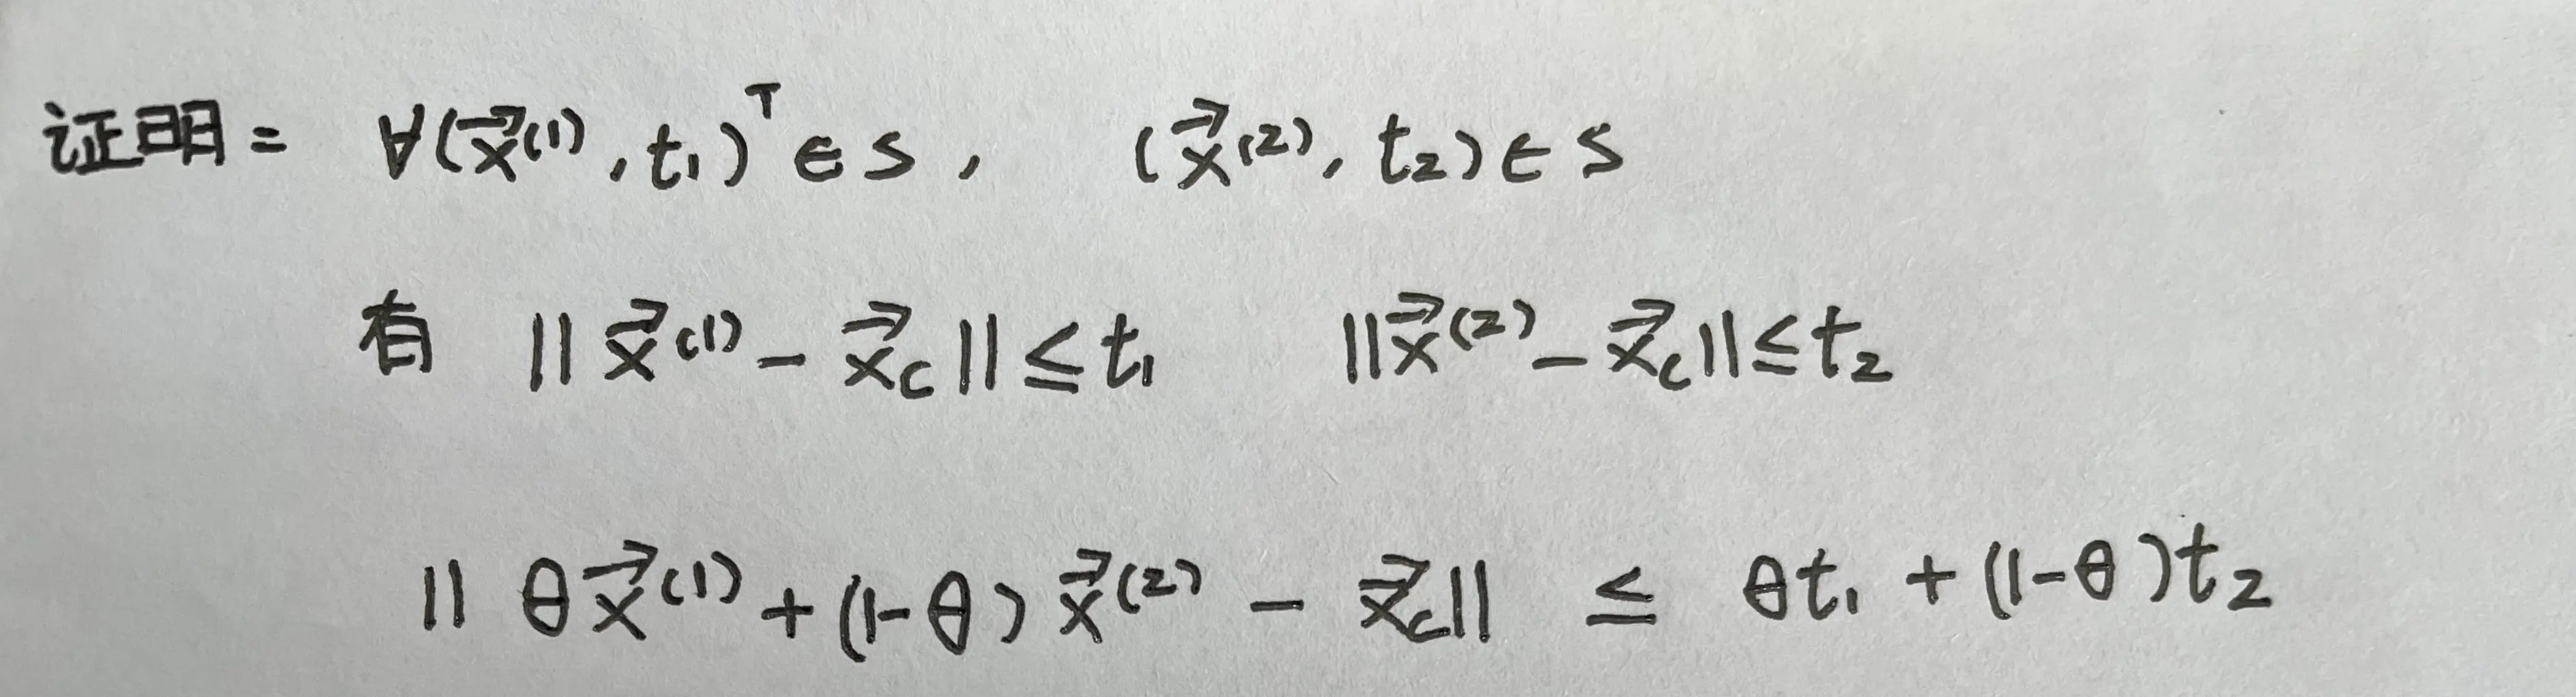 证明= ∀(x⃗⁽¹⁾, t₁)ᵀ ∈ S, (x⃗⁽²⁾, t₂) ∈ S
有 ||x⃗⁽¹⁾ - x⃗_c|| ≤ t₁ ||x⃗⁽²⁾ - x⃗_c|| ≤ t₂
|| θx⃗⁽¹⁾ + (1-θ) x⃗⁽²⁾ - x⃗_c|| ≤ θt₁ + (1-θ)t₂